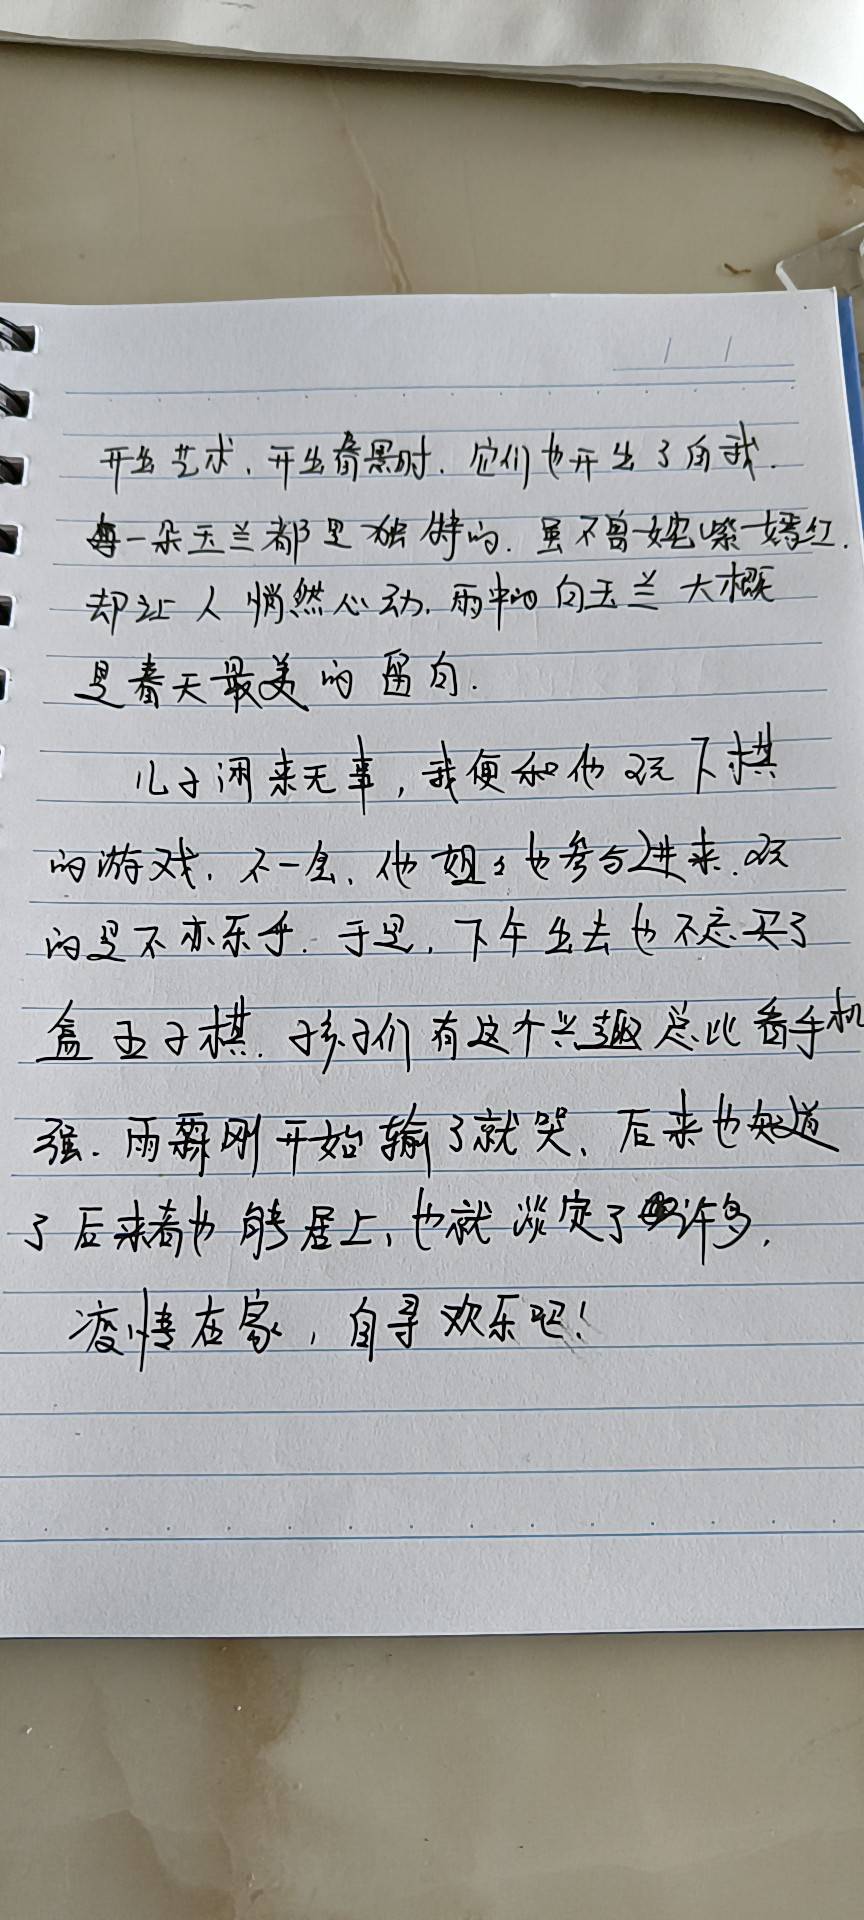 开出艺术、开出背景时,它们也开出了自我.
每一朵玉兰都是独特的.虽不曾姹紫嫣红,
却让人悄然心动.雨中的白玉兰大概
是春天最美的留白.
儿子闲来无事,我便和他玩下棋
的游戏.不一会、他姐姐也参与进来.玩
的是不亦乐乎.于是,下午出去也不忘买了
盒五子棋.孩子们有这个兴趣总比看手机
强.雨霖刚开始输了就哭、后来也知道
了后来者也能居上,也就淡定了许多,
疫情在家,自寻欢乐吧!